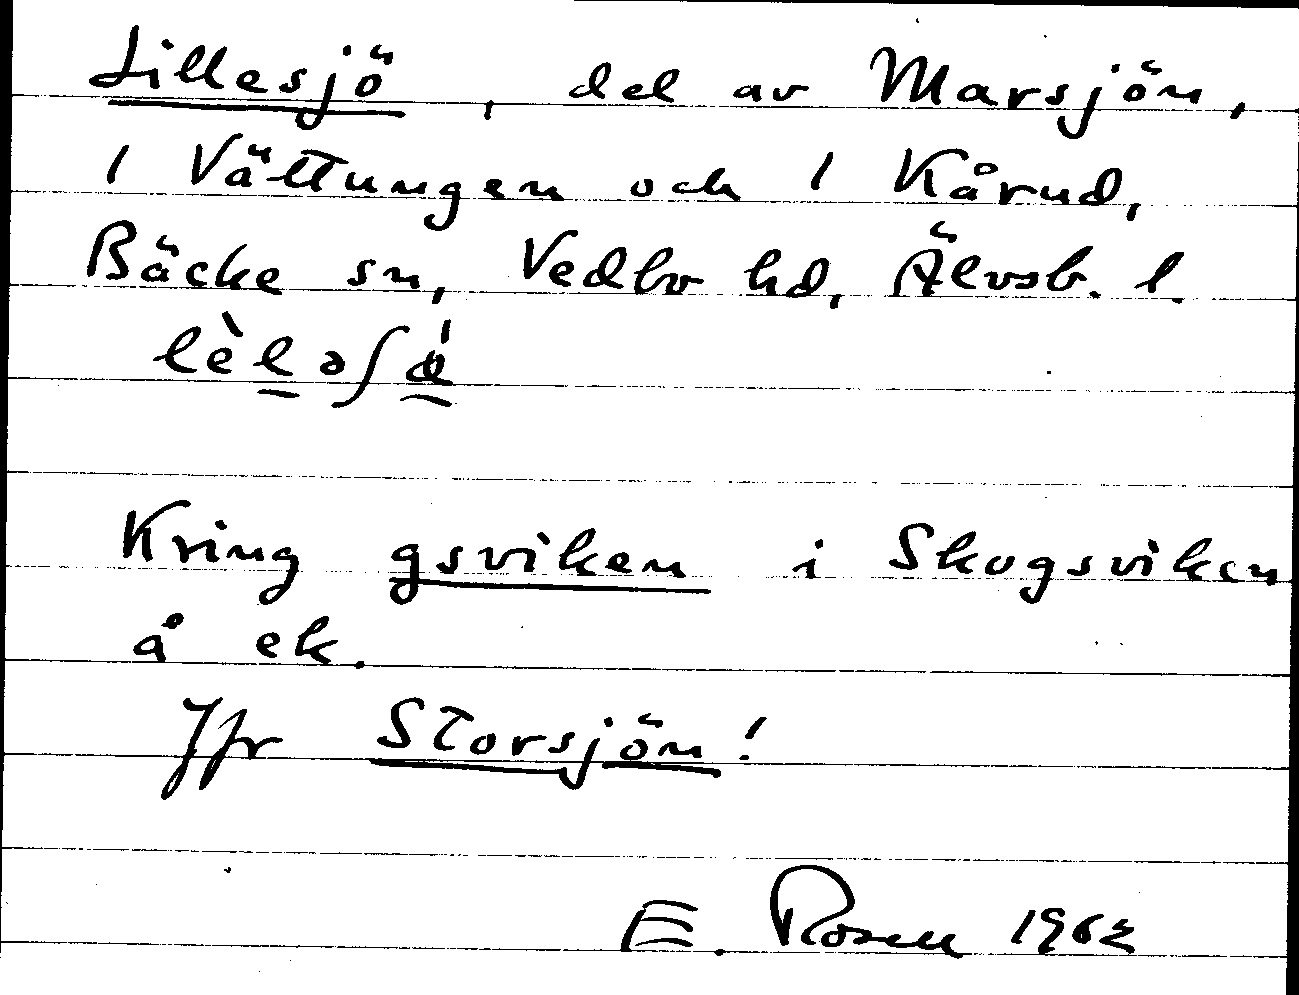 Lillesjö, del av Marsjön,
1 Vättungen och 1 Kårud,
Bäcke sn, Vedbo hd, Älvsb. l.
Kring gsviken i Skogsviken
å ek.
Jfr Storsjön!
E. Rosell 1962